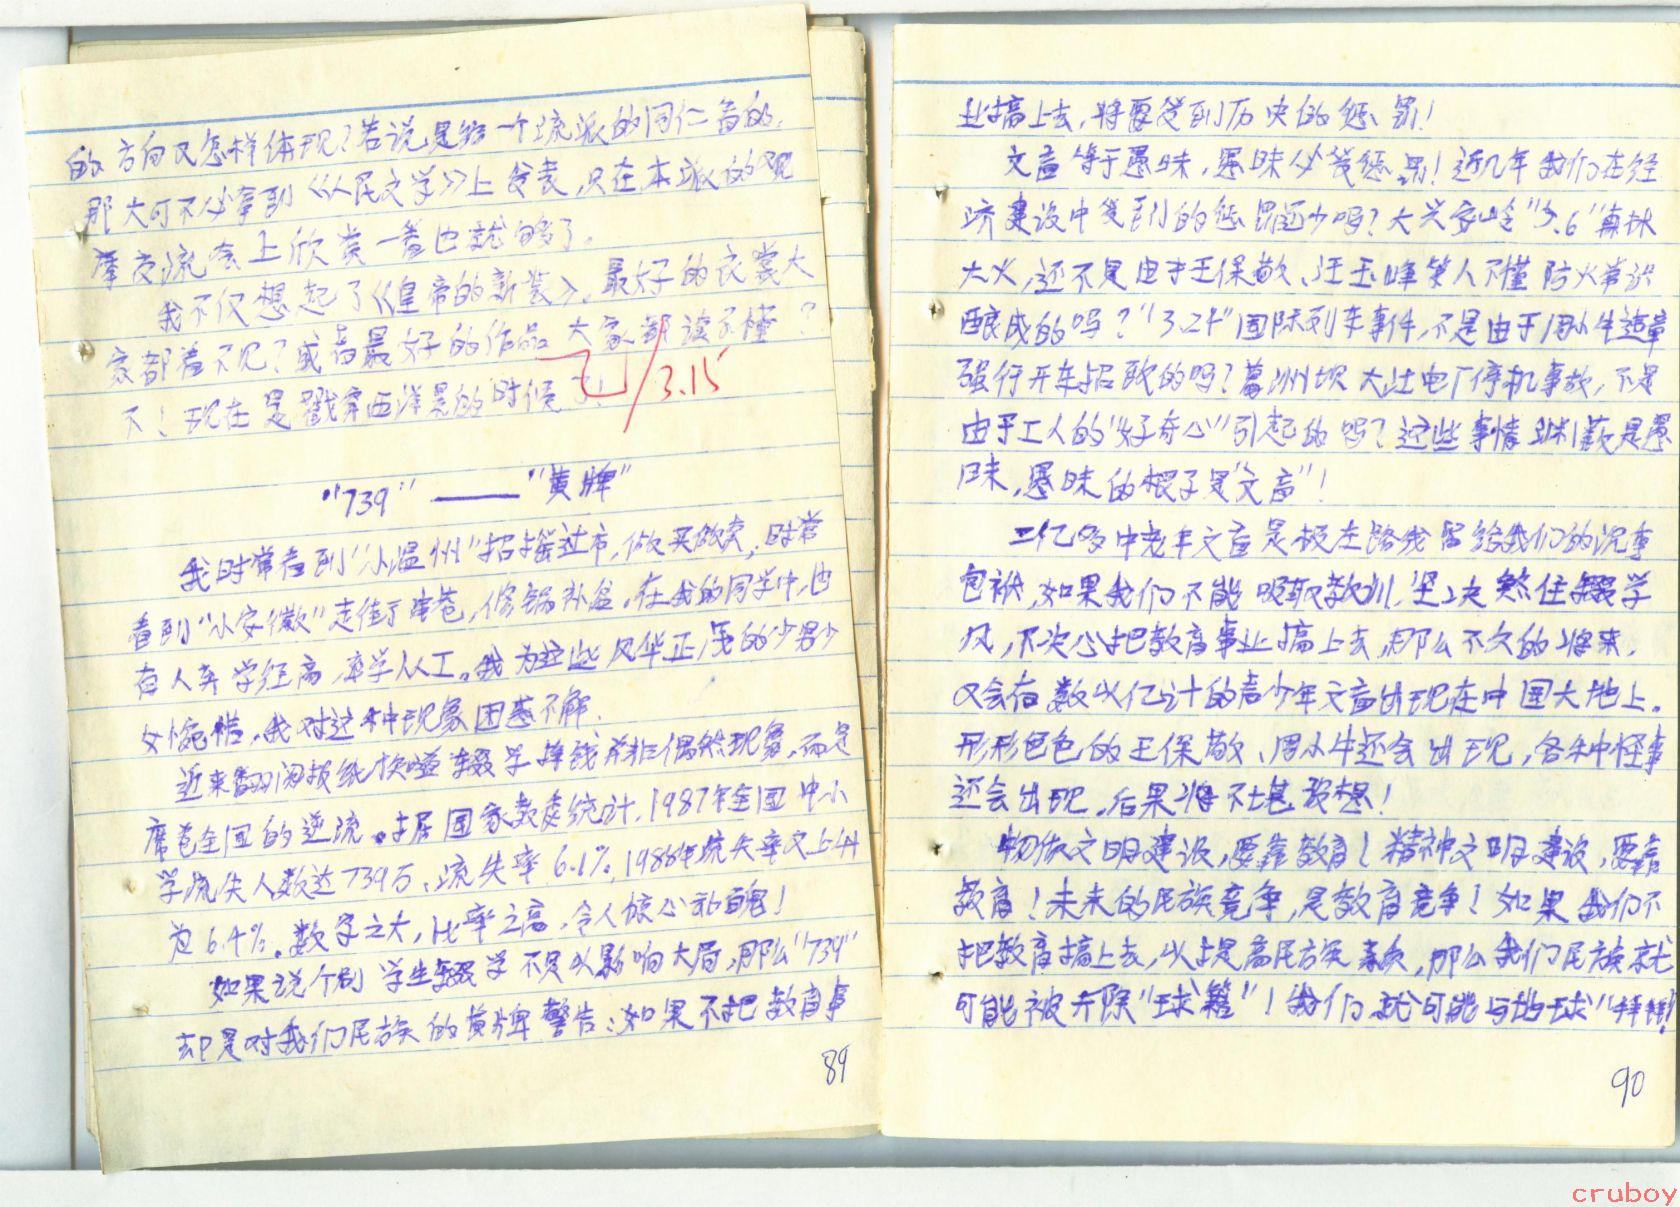 的方向又怎样体现？若说是给一个流派的同仁看的，
那大可不必拿到《人民文学》上发表，只在本派的观
摩交流会上欣赏一番也就够了。
我不仅想起了《皇帝的新装》，最好的衣裳大
家都看不见？或者最好的作品大家都读不懂？
不！现在是戳穿西洋景的时候了！
3.15
“739”——“黄牌”
我时常看到“小温州”招摇过市，做买做卖，时常
看到“小安徽”走街串巷，修锅补盆。在我的同学中，也
有人弃学经商，弃学从工。我为这些风华正茂的少男少
女惋惜，我对这种现象困惑不解。
近来翻阅报纸，辍学挣钱并非偶然现象，而是
席卷全国的逆流。据国家教委统计，1987年全国中小
学流失人数达739万，流失率6.1%，1988年流失率又上升
为6.4%。数字之大，比率之高，令人惊心动魄！
如果说个别学生辍学不足以影响大局，那么“739”
却是对我们民族的黄牌警告：如果不把教育事
89
业搞上去，将要受到历史的惩罚！
文盲等于愚昧，愚昧必受惩罚！近几年我们在经
济建设中受到的惩罚还少吗？大兴安岭“5.6”森林
大火，还不是由于王保敬、汪玉峰等人不懂防火常识
酿成的吗？“3.24”国际列车事件，不是由于周小牛违章
强行开车招致的吗？葛洲坝大江电厂停机事故，不是
由于工人的“好奇心”引起的吗？这些事情归根是愚
昧，愚昧的根子是“文盲”！
二亿多中老年文盲是极左路线留给我们的沉重
包袱，如果我们不能吸取教训，坚决煞住辍学
风，不决心把教育事业搞上去，那么不久的将来，
又会有数以亿计的青少年文盲出现在中国大地上。
形形色色的王保敬、周小牛还会出现，各种怪事
还会出现，后果将不堪设想！
物质文明建设，要靠教育！精神文明建设，要靠
教育！未来的民族竞争，是教育竞争！如果我们不
把教育搞上去，以提高民族素质，那么我们民族就
可能被开除“球籍”！我们就可能与地球“拜拜”！
90
cruboy